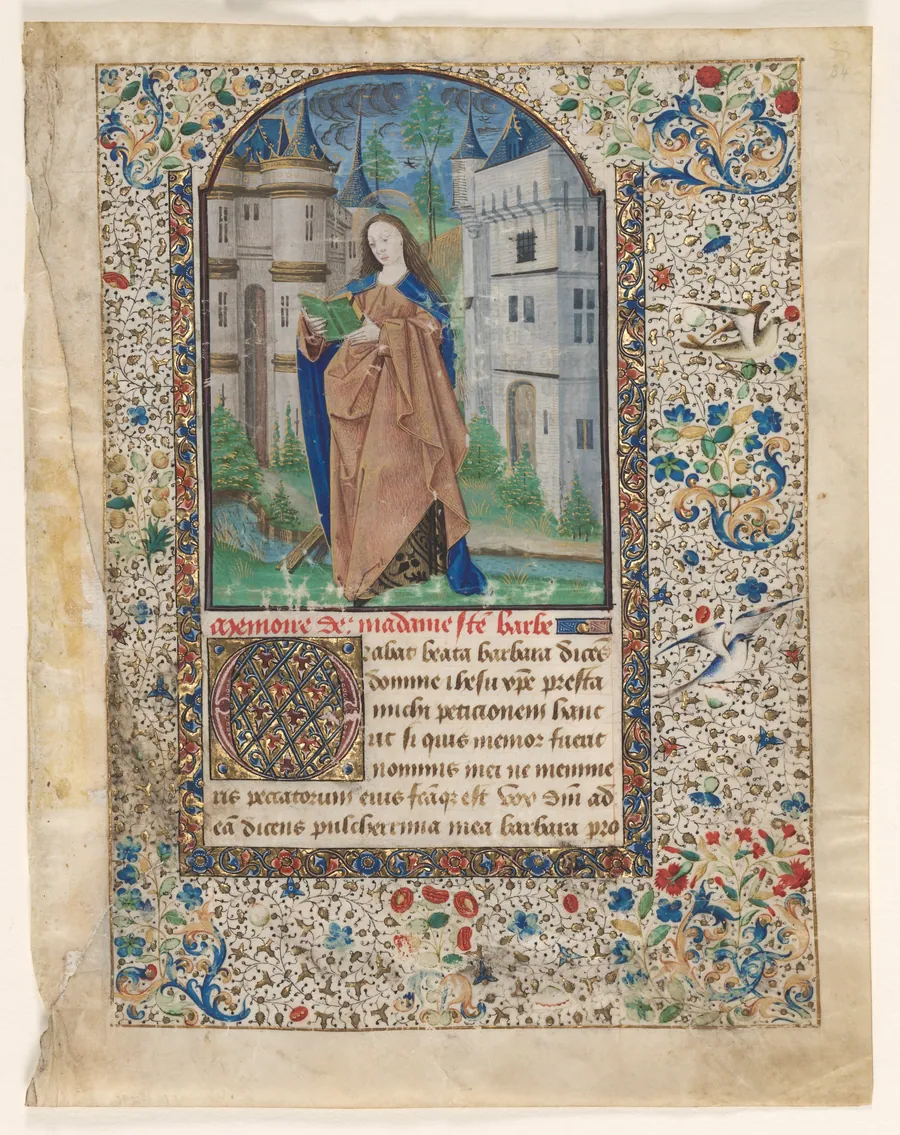 Memoire de madame ste barbe
Orabat beata barbara dices
domine ihesu xpe presta
michi peticionem hanc
ut si quis memor fuerit
nominis mei ne memine
ris peccatorum eius fcaqz est vox dni ad
eā dicens pulcherrima mea barbara pro